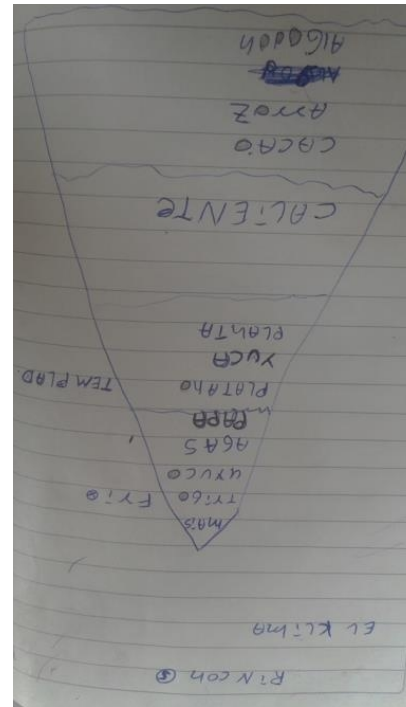 RiNCON
EL KLiMA
MAiS
TriGO Frio
UYUCO
PAPA
PLATANO TEMPLAD
YUCA
PLANTA
CALiENTE
CACAO
ArroZ
AlGODON